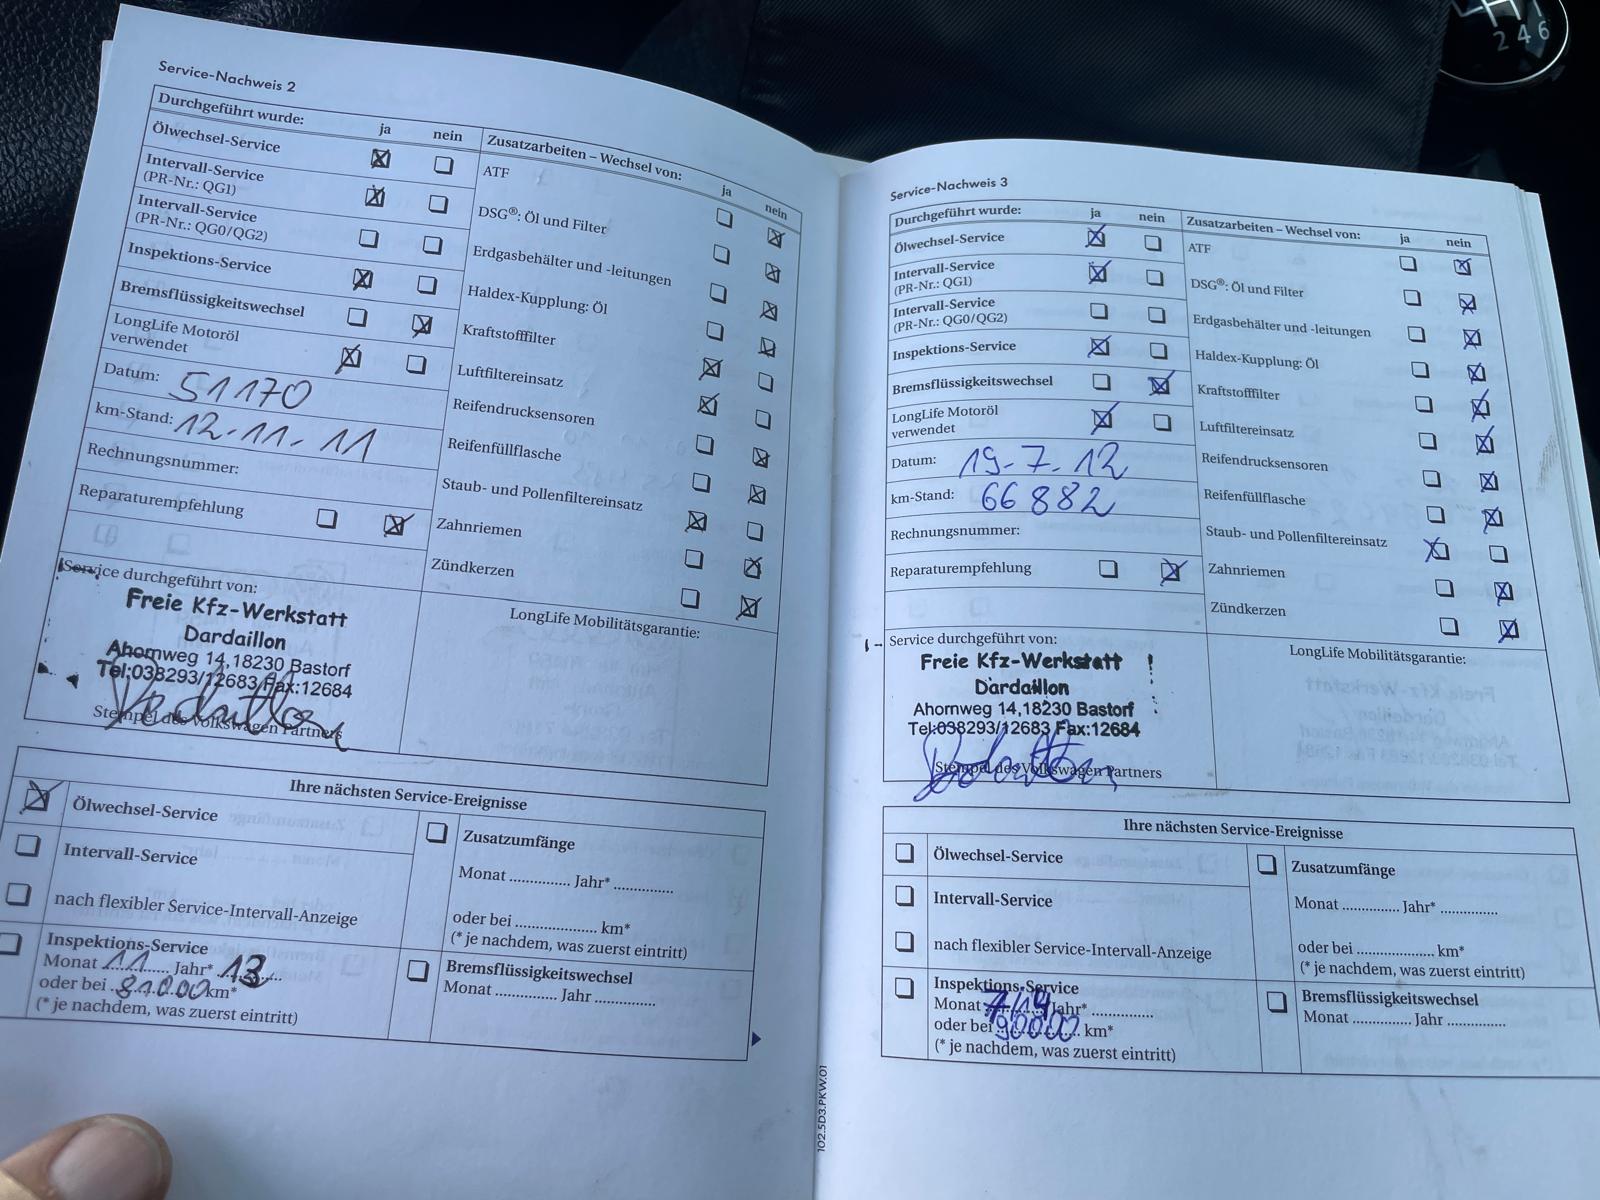 2 4 6
Service-Nachweis 2
Durchgeführt wurde: ja nein
Ölwechsel-Service
Intervall-Service
(PR-Nr.: QG1)
Intervall-Service
(PR-Nr.: QG0/QG2)
Inspektions-Service
Bremsflüssigkeitswechsel
LongLife Motoröl
verwendet
Datum: 51170
km-Stand: 12.11.11
Rechnungsnummer:
Reparaturempfehlung
Zusatzarbeiten – Wechsel von: ja nein
ATF
DSG®: Öl und Filter
Erdgasbehälter und -leitungen
Haldex-Kupplung: Öl
Kraftstofffilter
Luftfiltereinsatz
Reifendrucksensoren
Reifenfüllflasche
Staub- und Pollenfiltereinsatz
Zahnriemen
Zündkerzen
Service durchgeführt von:
Freie Kfz-Werkstatt
Dardaillon
Ahornweg 14,18230 Bastorf
Tel:038293/12683 Fax:12684
Stempel des Volkswagen Partners
LongLife Mobilitätsgarantie:
Ihre nächsten Service-Ereignisse
Ölwechsel-Service
Intervall-Service
nach flexibler Service-Intervall-Anzeige
Inspektions-Service
Monat 11 Jahr* 13
oder bei 81000 km*
(* je nachdem, was zuerst eintritt)
Zusatzumfänge
Monat ............... Jahr* ...............
oder bei ............... km*
(* je nachdem, was zuerst eintritt)
Bremsflüssigkeitswechsel
Monat ............... Jahr ...............
Service-Nachweis 3
Durchgeführt wurde: ja nein
Ölwechsel-Service
Intervall-Service
(PR-Nr.: QG1)
Intervall-Service
(PR-Nr.: QG0/QG2)
Inspektions-Service
Bremsflüssigkeitswechsel
LongLife Motoröl
verwendet
Datum: 19-7.12
km-Stand: 66882
Rechnungsnummer:
Reparaturempfehlung
Zusatzarbeiten – Wechsel von: ja nein
ATF
DSG®: Öl und Filter
Erdgasbehälter und -leitungen
Haldex-Kupplung: Öl
Kraftstofffilter
Luftfiltereinsatz
Reifendrucksensoren
Reifenfüllflasche
Staub- und Pollenfiltereinsatz
Zahnriemen
Zündkerzen
Service durchgeführt von:
Freie Kfz-Werkstatt
Dardaillon
Ahornweg 14,18230 Bastorf
Tel:038293/12683 Fax:12684
Stempel des Volkswagen Partners
LongLife Mobilitätsgarantie:
Ihre nächsten Service-Ereignisse
Ölwechsel-Service
Intervall-Service
nach flexibler Service-Intervall-Anzeige
Inspektions-Service
Monat 7/14 Jahr* ...............
oder bei 90000 km*
(* je nachdem, was zuerst eintritt)
Zusatzumfänge
Monat ............... Jahr* ...............
oder bei ............... km*
(* je nachdem, was zuerst eintritt)
Bremsflüssigkeitswechsel
Monat ............... Jahr ...............
102.5D3.PKW.01